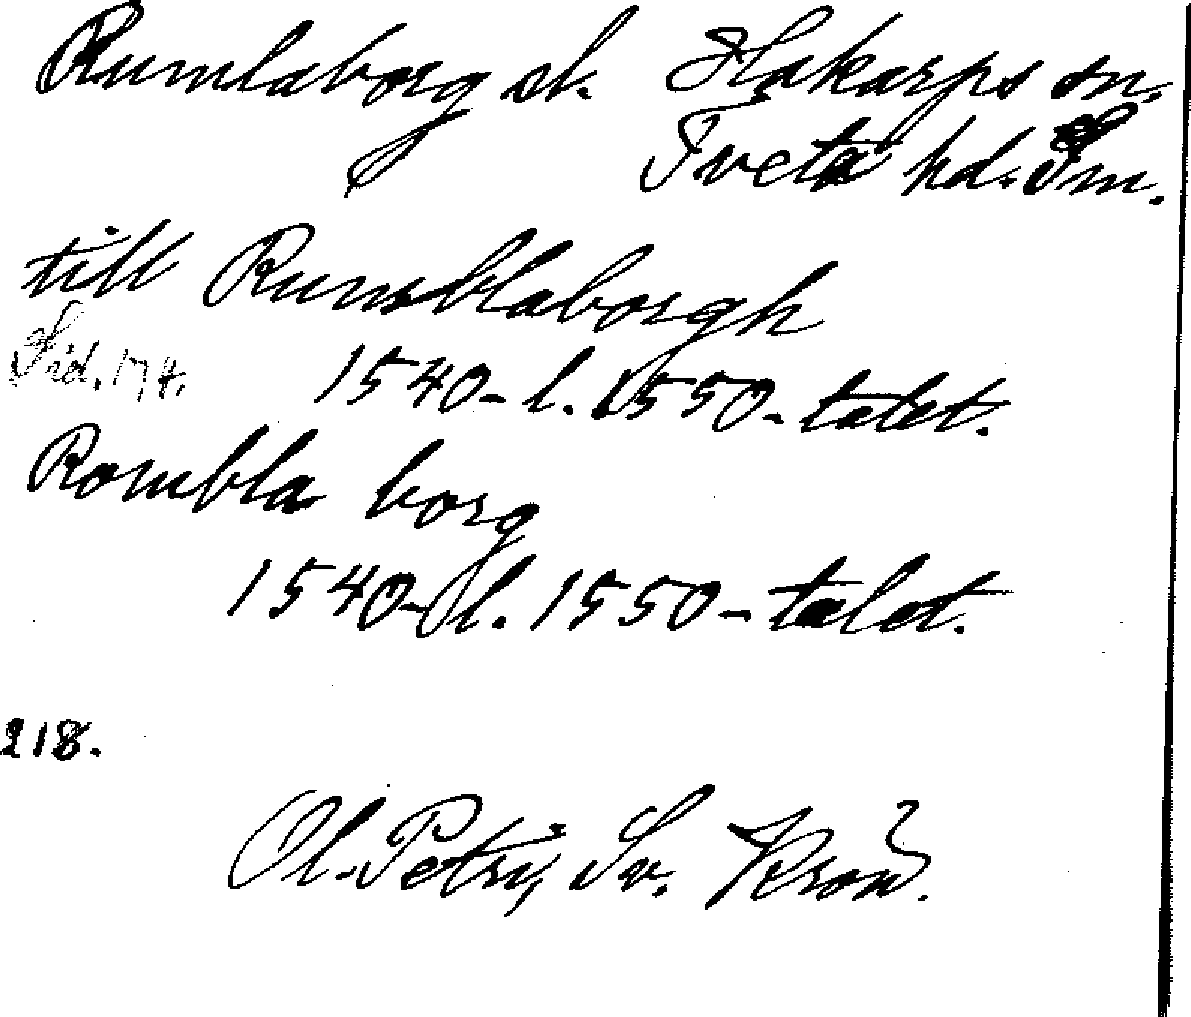 Rumlaborg sl. Hakarps sn.
Tveta hd. Sm.
till Rumblaborgh
Sid. 174. 1540- l. 1550-talet.
Rombla borg
1540- l. 1550-talet.
218.
Ol. Petri, Sv. Krön.